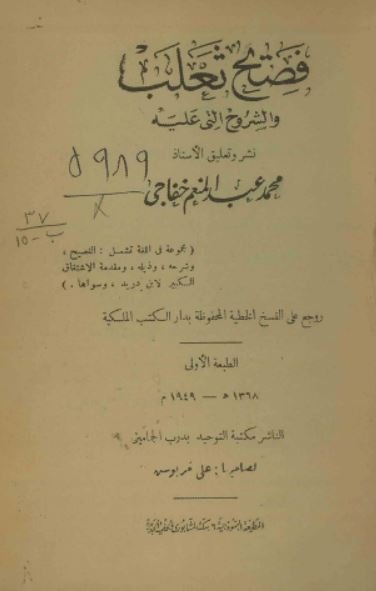 فَصيح ثَعلَب
والشروح التى عليه
نشر وتعليق الأستاذ
محمد عبد المنعم خفاجى
٥٩٨٩
٣٧
ب - ١٥
( مجموعة فى اللغة تشمل : الفصيح ،
وشرحه ، وذيله ، ومقدمة الاشتقاق
الكبير لابن دريد ، وسواها . )
روجع على النسخ الخطية المحفوظة بدار الكتب الملكية
الطبعة الأولى
١٣٦٨ هـ — ١٩٤٩ م
الناشر مكتبة التوحيد بدرب الجماميز
لصاحبها : على خربوش
المطبعة النموذجية